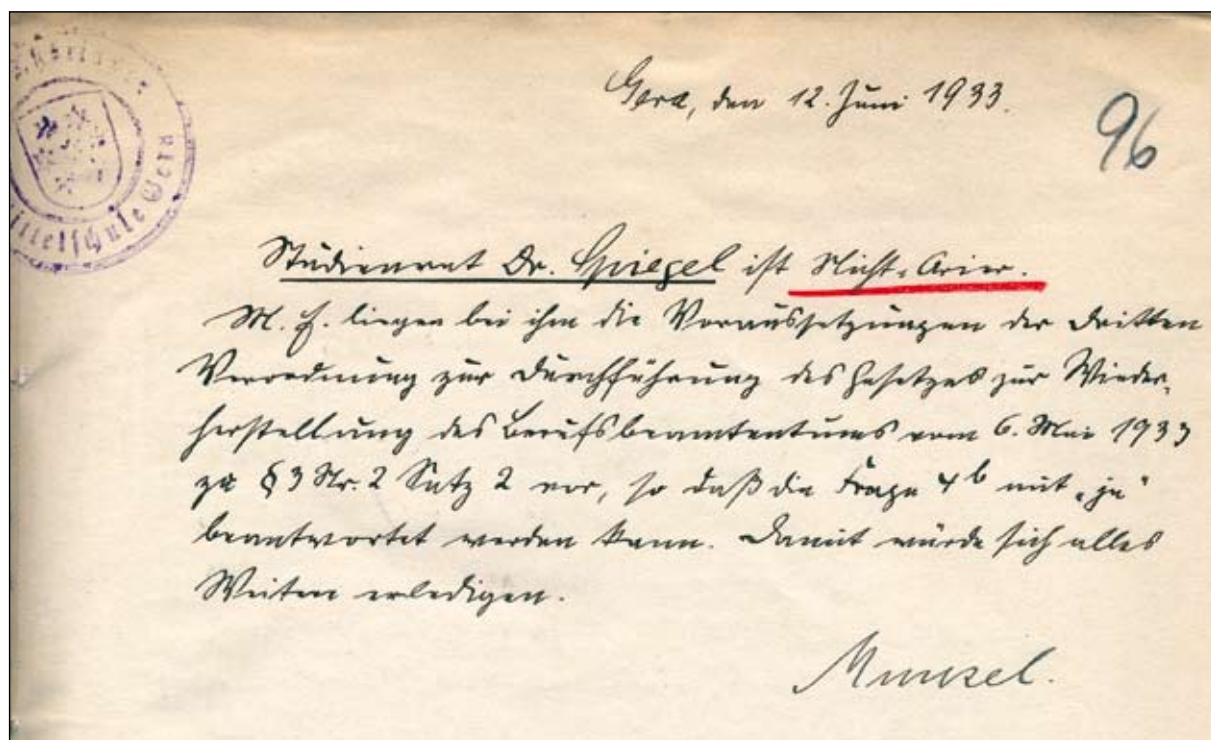 Mittelschule Gera
Gera, den 12. Juni 1933.
96
Studienrat Dr. Spiegel ist Nicht-Arier.
M. E. liegen bei ihm die Voraussetzungen der dritten
Verordnung zur Durchführung des Gesetzes zur Wieder-
herstellung des Berufsbeamtentums vom 6. Mai 1933
zu § 3 Nr. 2 Satz 2 vor, so daß die Frage 4b mit „ja"
beantwortet werden kann. Damit würde sich alles
Weitere erledigen.